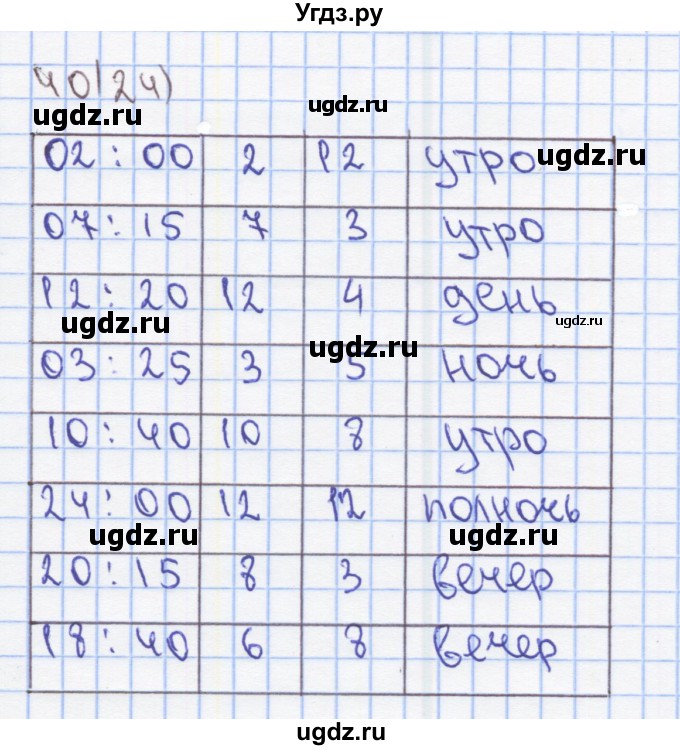 Угдз.ру
40(24)
ugdz.ru ugdz.ru
02:00 2 12 утро ugdz.ru
07:15 7 3 утро
12:20 12 4 день
ugdz.ru ugdz.ru
03:25 3 5 ночь
ugdz.ru
10:40 10 8 утро
24:00 12 12 полночь
ugdz.ru ugdz.ru
20:15 8 3 вечер
18:40 6 8 вечер
ugdz.ru